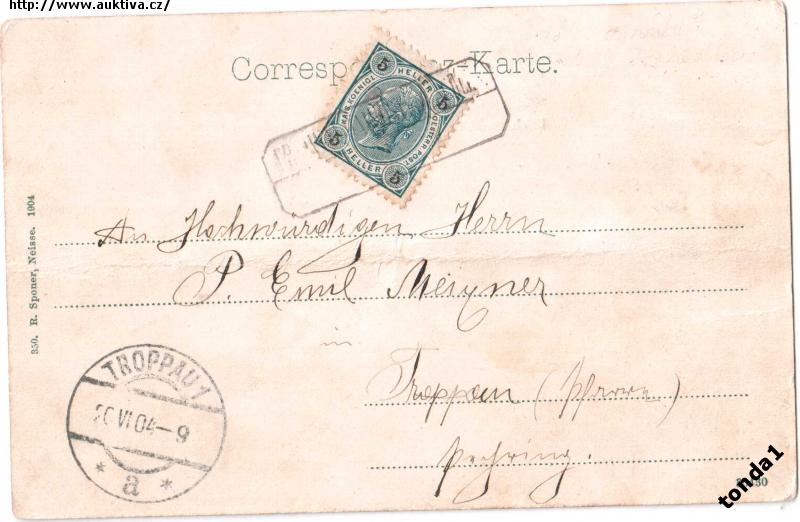 http://www.auktiva.cz/
Correspondenz-Karte.
5 5 5 5
HELLER HELLER
KAIS. KOENIGL. OESTERR. POST
An Hochwürdigen Herrn
P. Emil Meixner
in
Troppau (Pfarre)
350. R. Sponer, Neisse. 1904
TROPPAU 1
20 VI 04-9
* a *
tonda1